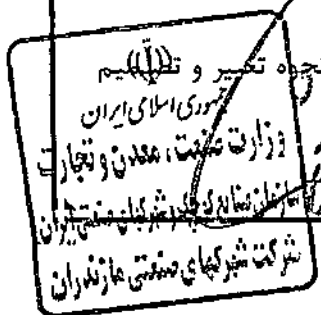 نحوه تکبیر و تنظیم
جمهوری اسلامی ایران
وزارت صنعت، معدن و تجارت
سازمان صنایع کوچک و شهرکهای صنعتی ایران
شرکت شهرکهای صنعتی مازندران